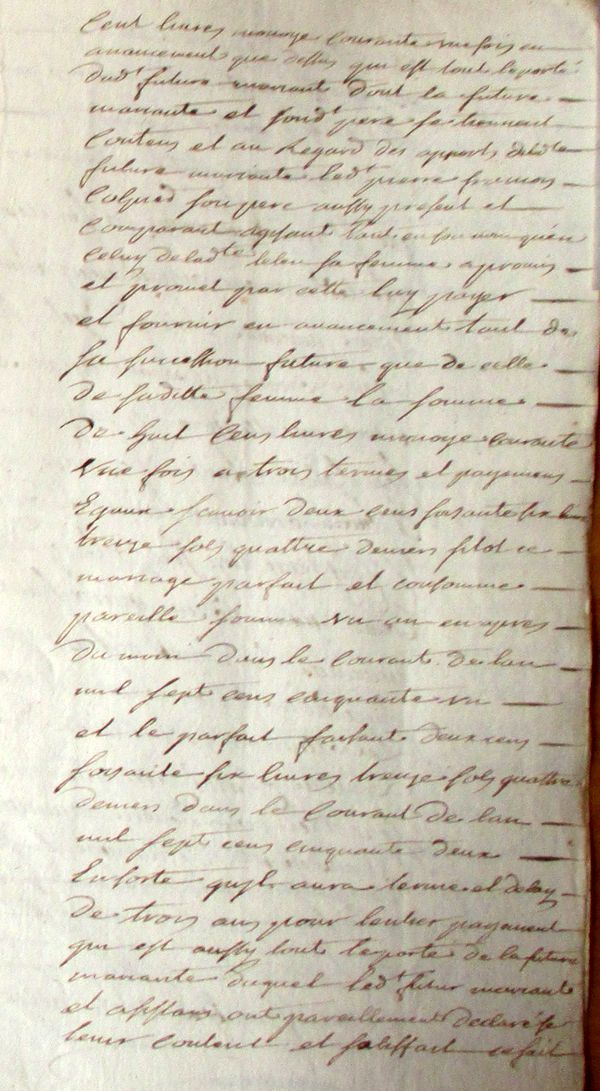 Cent livres monoye courante une fois en
avancement que dessus qui est tout le porté
dudt futur mariant dont la future
mariante et sondt pere se tiennent
Contens et au Regard des apports de ladte
future mariante ledt pierre
lequel son pere aussy present et
Comparant agissant tant en son nom qu'en
Celuy de ladte sa femme a promis
et promet par cette luy payer
et fournir en avancement tant de
sa succession future que de celle
de saditte femme la somme
de huit Cens livres monoye courante
Une fois a trois termes et payemens
Egaux scavoir deux cens soisante six livres
treize sols quattre deniers sitot ce
mariage parfait et consommé
pareille somme un an en apres
du moin dans le Courant de lan
mil sept cens cinquante un
et le parfait faisant deux cens
soisante six livres treize sols quattre
deniers dans le Courant de lan
mil sept cens cinquante deux
En sorte qu'il aura terme et delay
de trois ans pour lentier payement
qui est aussy tout le porté de la future
mariante duquel ledt futur mariant
et assistans ont pareillement declaré se
tenir Content et satisfait ce fait